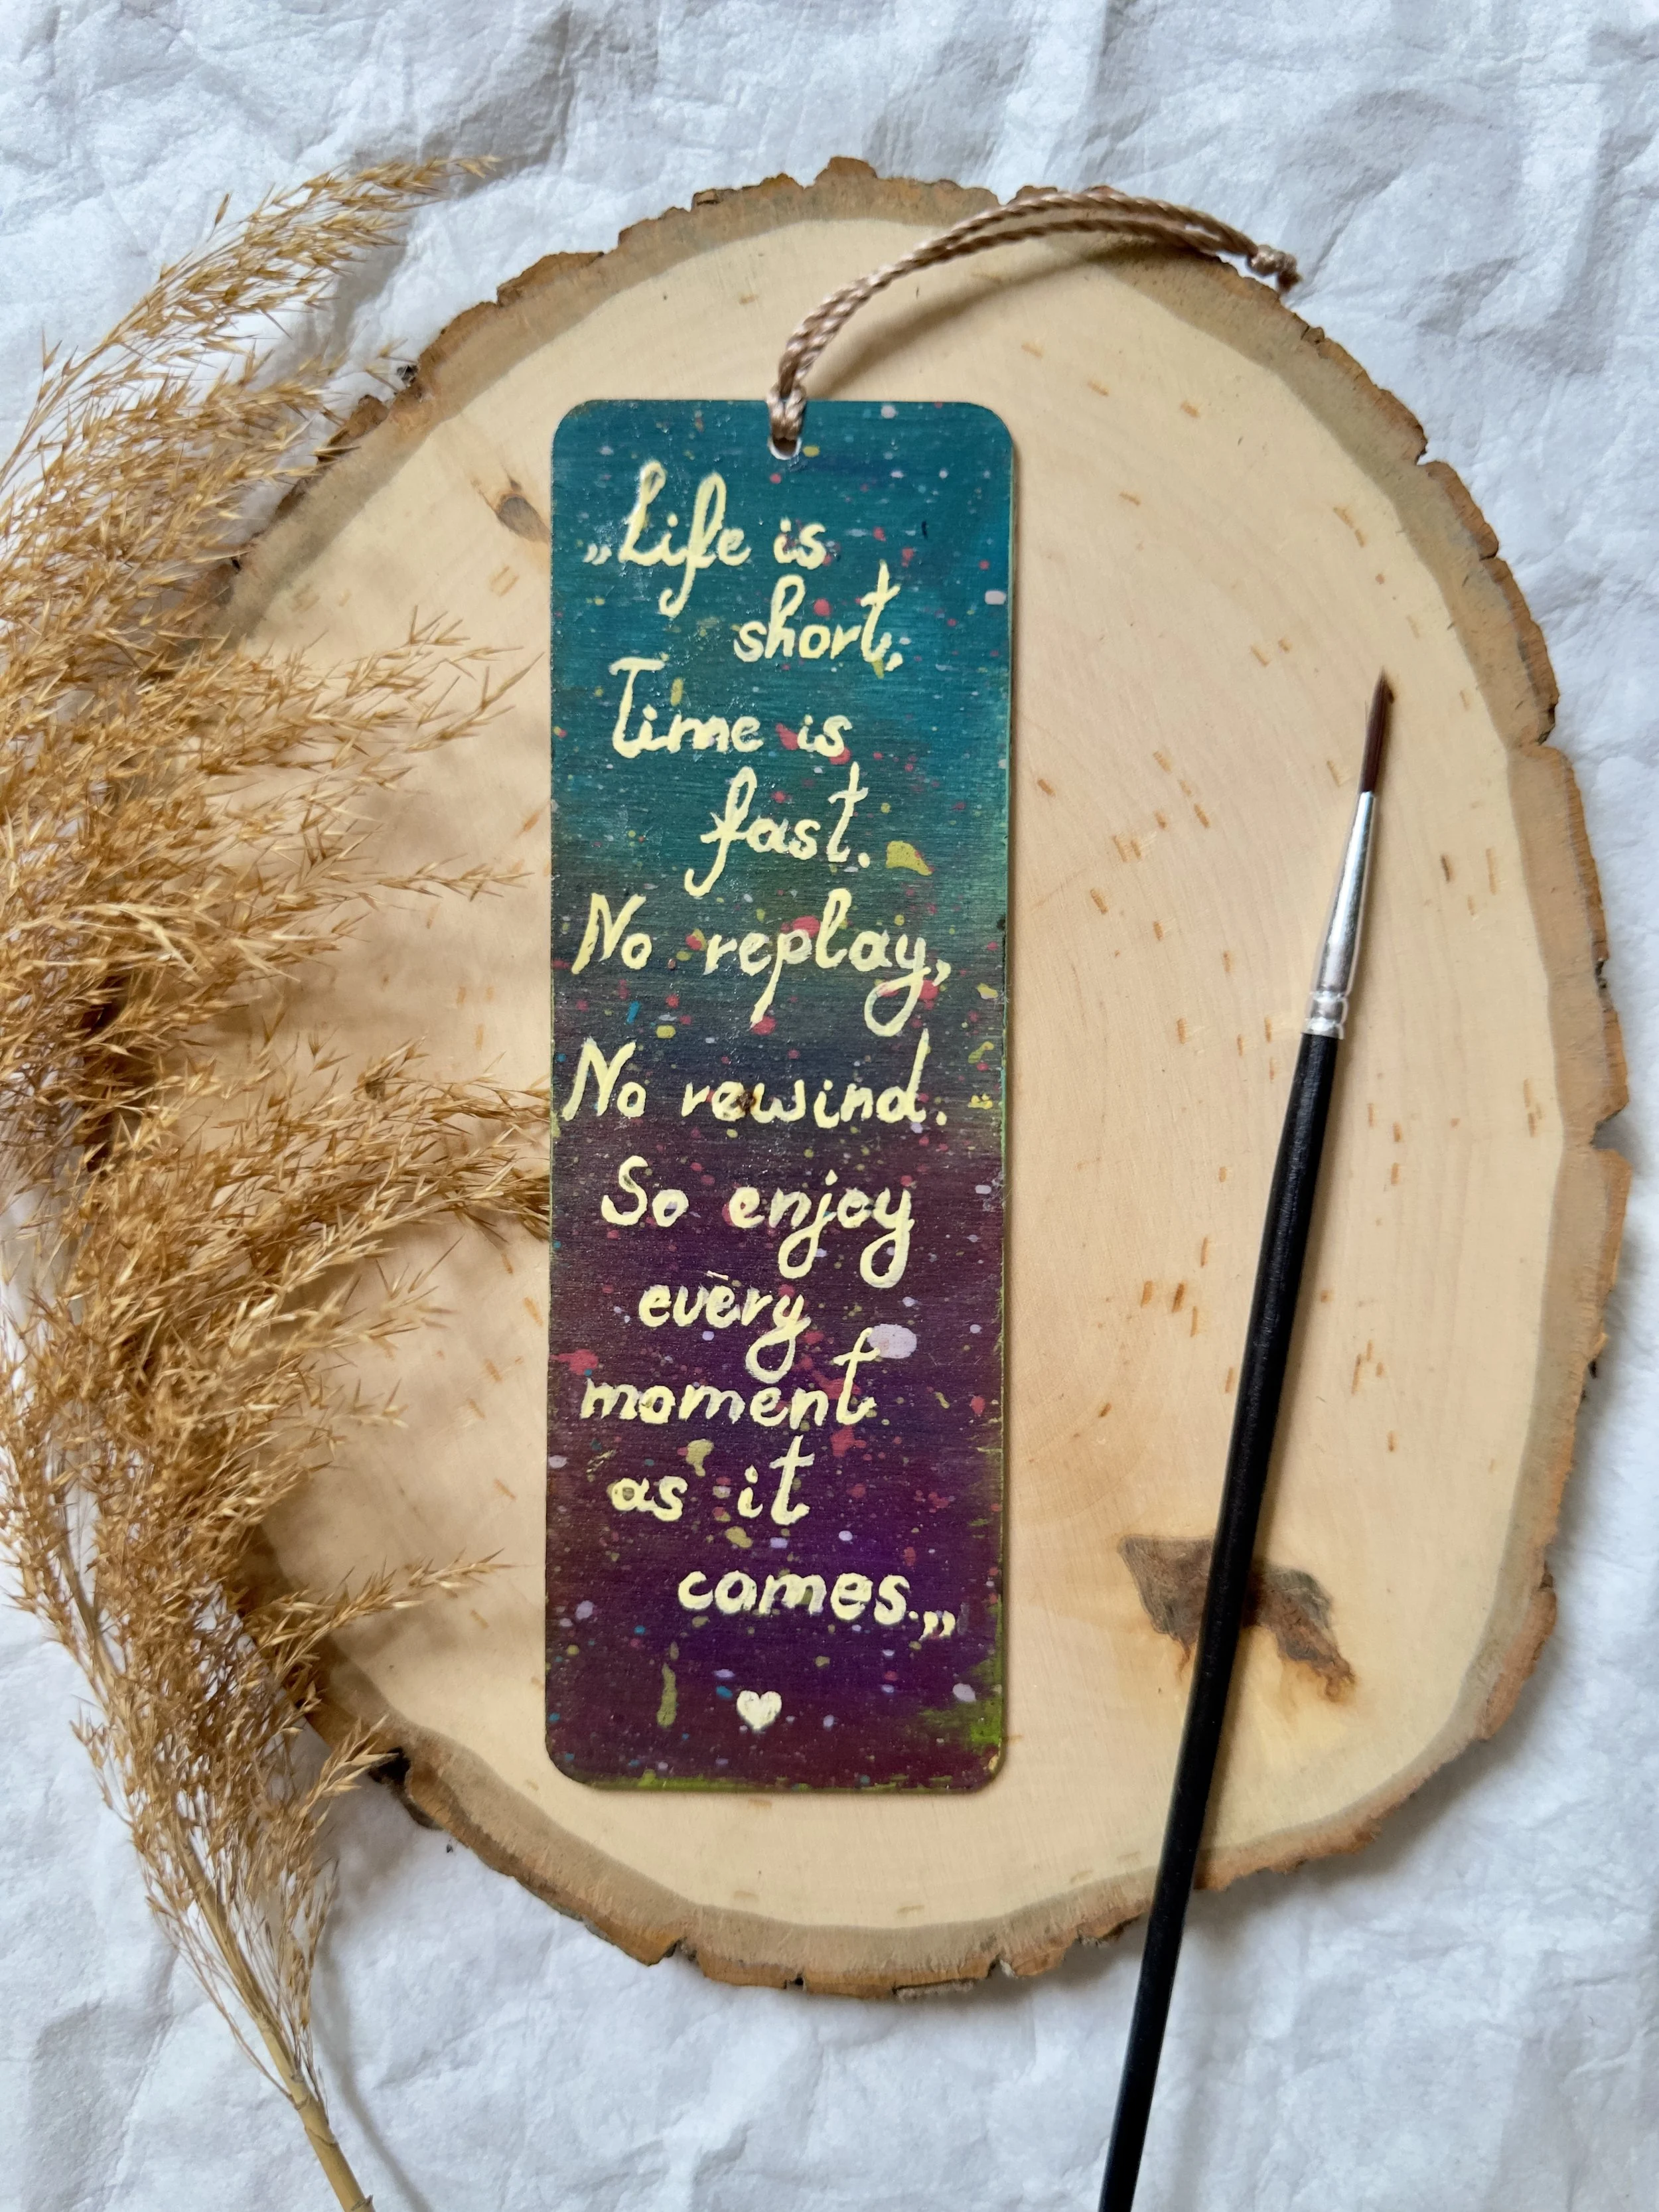 „Life is
short,
Time is
fast.
No replay,
No rewind.
So enjoy
every
moment
as it
comes.„